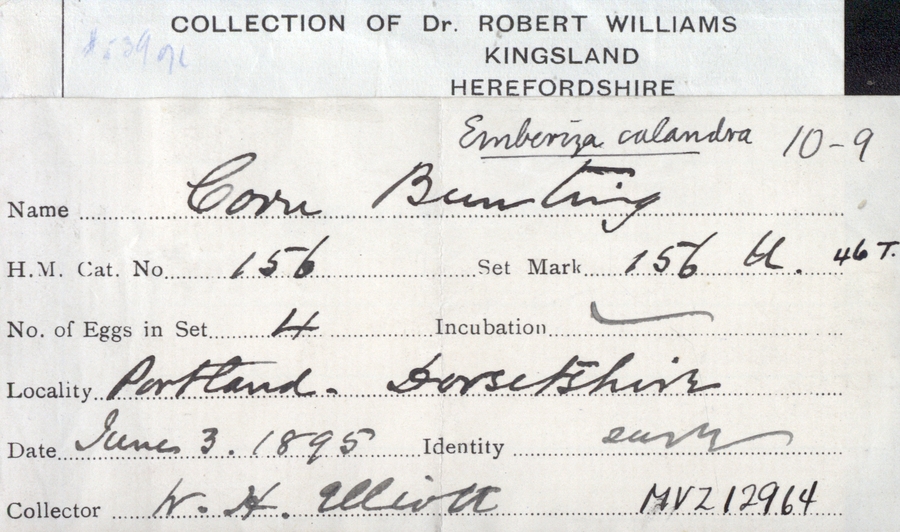 COLLECTION OF Dr. ROBERT WILLIAMS
KINGSLAND
HEREFORDSHIRE
Emberiza calandra 10-9
Name Corn Bunting
H.M. Cat. No. 156 Set Mark 156 46 T.
No. of Eggs in Set 4 Incubation
Locality Portland - Dorsetshire
Date June 3. 1895 Identity
Collector W. H. Elliott MVZ 12964